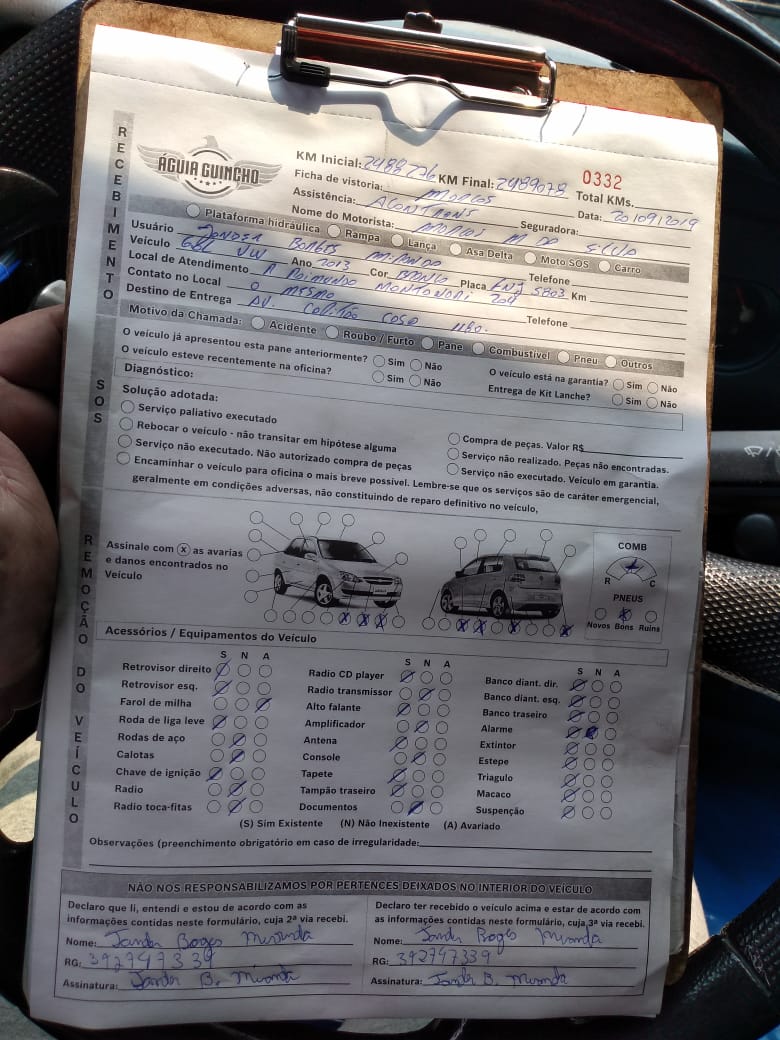 RECEBIMENTO
ÁGUIA GUINCHO
KM Inicial: 2488776 KM Final: 2489078 0332
Ficha de vistoria: MARCOS Total KMs.
Assistência: Data: 20/09/2019
Nome do Motorista: MARCOS M DA SILVA Seguradora:
Plataforma hidráulica Rampa Lança Asa Delta Moto SOS Carro
Usuário JANDER BORGES MIRANDA Telefone
Veículo GOL VW Ano 2013 Cor BRANCO Placa 5803 Km
Local de Atendimento R RAIMUNDO 204
Contato no Local O MESMO Telefone
Destino de Entrega AV. 1180.
Motivo da Chamada: Acidente Roubo / Furto Pane Combustível Pneu Outros
SOS
O veículo já apresentou esta pane anteriormente? Sim Não O veículo está na garantia? Sim Não
O veículo esteve recentemente na oficina? Sim Não Entrega de Kit Lanche? Sim Não
Diagnóstico:
Solução adotada:
Serviço paliativo executado Compra de peças. Valor R$
Rebocar o veículo - não transitar em hipótese alguma Serviço não realizado. Peças não encontradas.
Serviço não executado. Não autorizado compra de peças Serviço não executado. Veículo em garantia.
Encaminhar o veículo para oficina o mais breve possível. Lembre-se que os serviços são de caráter emergencial,
geralmente em condições adversas, não constituindo de reparo definitivo no veículo,
REMOÇÃO DO VEÍCULO
Assinale com X as avarias
e danos encontrados no
Veículo
COMB
R C
PNEUS
Novos Bons Ruins
Acessórios / Equipamentos do Veículo
S N A S N A S N A
Retrovisor direito Radio CD player Banco diant. dir.
Retrovisor esq. Radio transmissor Banco diant. esq.
Farol de milha Alto falante Banco traseiro
Roda de liga leve Amplificador Alarme
Rodas de aço Antena Extintor
Calotas Console Estepe
Chave de ignição Tapete Triagulo
Radio Tampão traseiro Macaco
Radio toca-fitas Documentos Suspenção
(S) Sim Existente (N) Não Inexistente (A) Avariado
Observações (preenchimento obrigatório em caso de irregularidade:
NÃO NOS RESPONSABILIZAMOS POR PERTENCES DEIXADOS NO INTERIOR DO VEÍCULO
Declaro que li, entendi e estou de acordo com as
informações contidas neste formulário, cuja 2ª via recebi.
Nome: Jander Borges Miranda
RG: 392747339
Assinatura: Jander B. Miranda
Declaro ter recebido o veículo acima e estar de acordo com
as informações contidas neste formulário, cuja 3ª via recebi.
Nome: Jander Borges Miranda
RG: 392747339
Assinatura: Jander B. Miranda